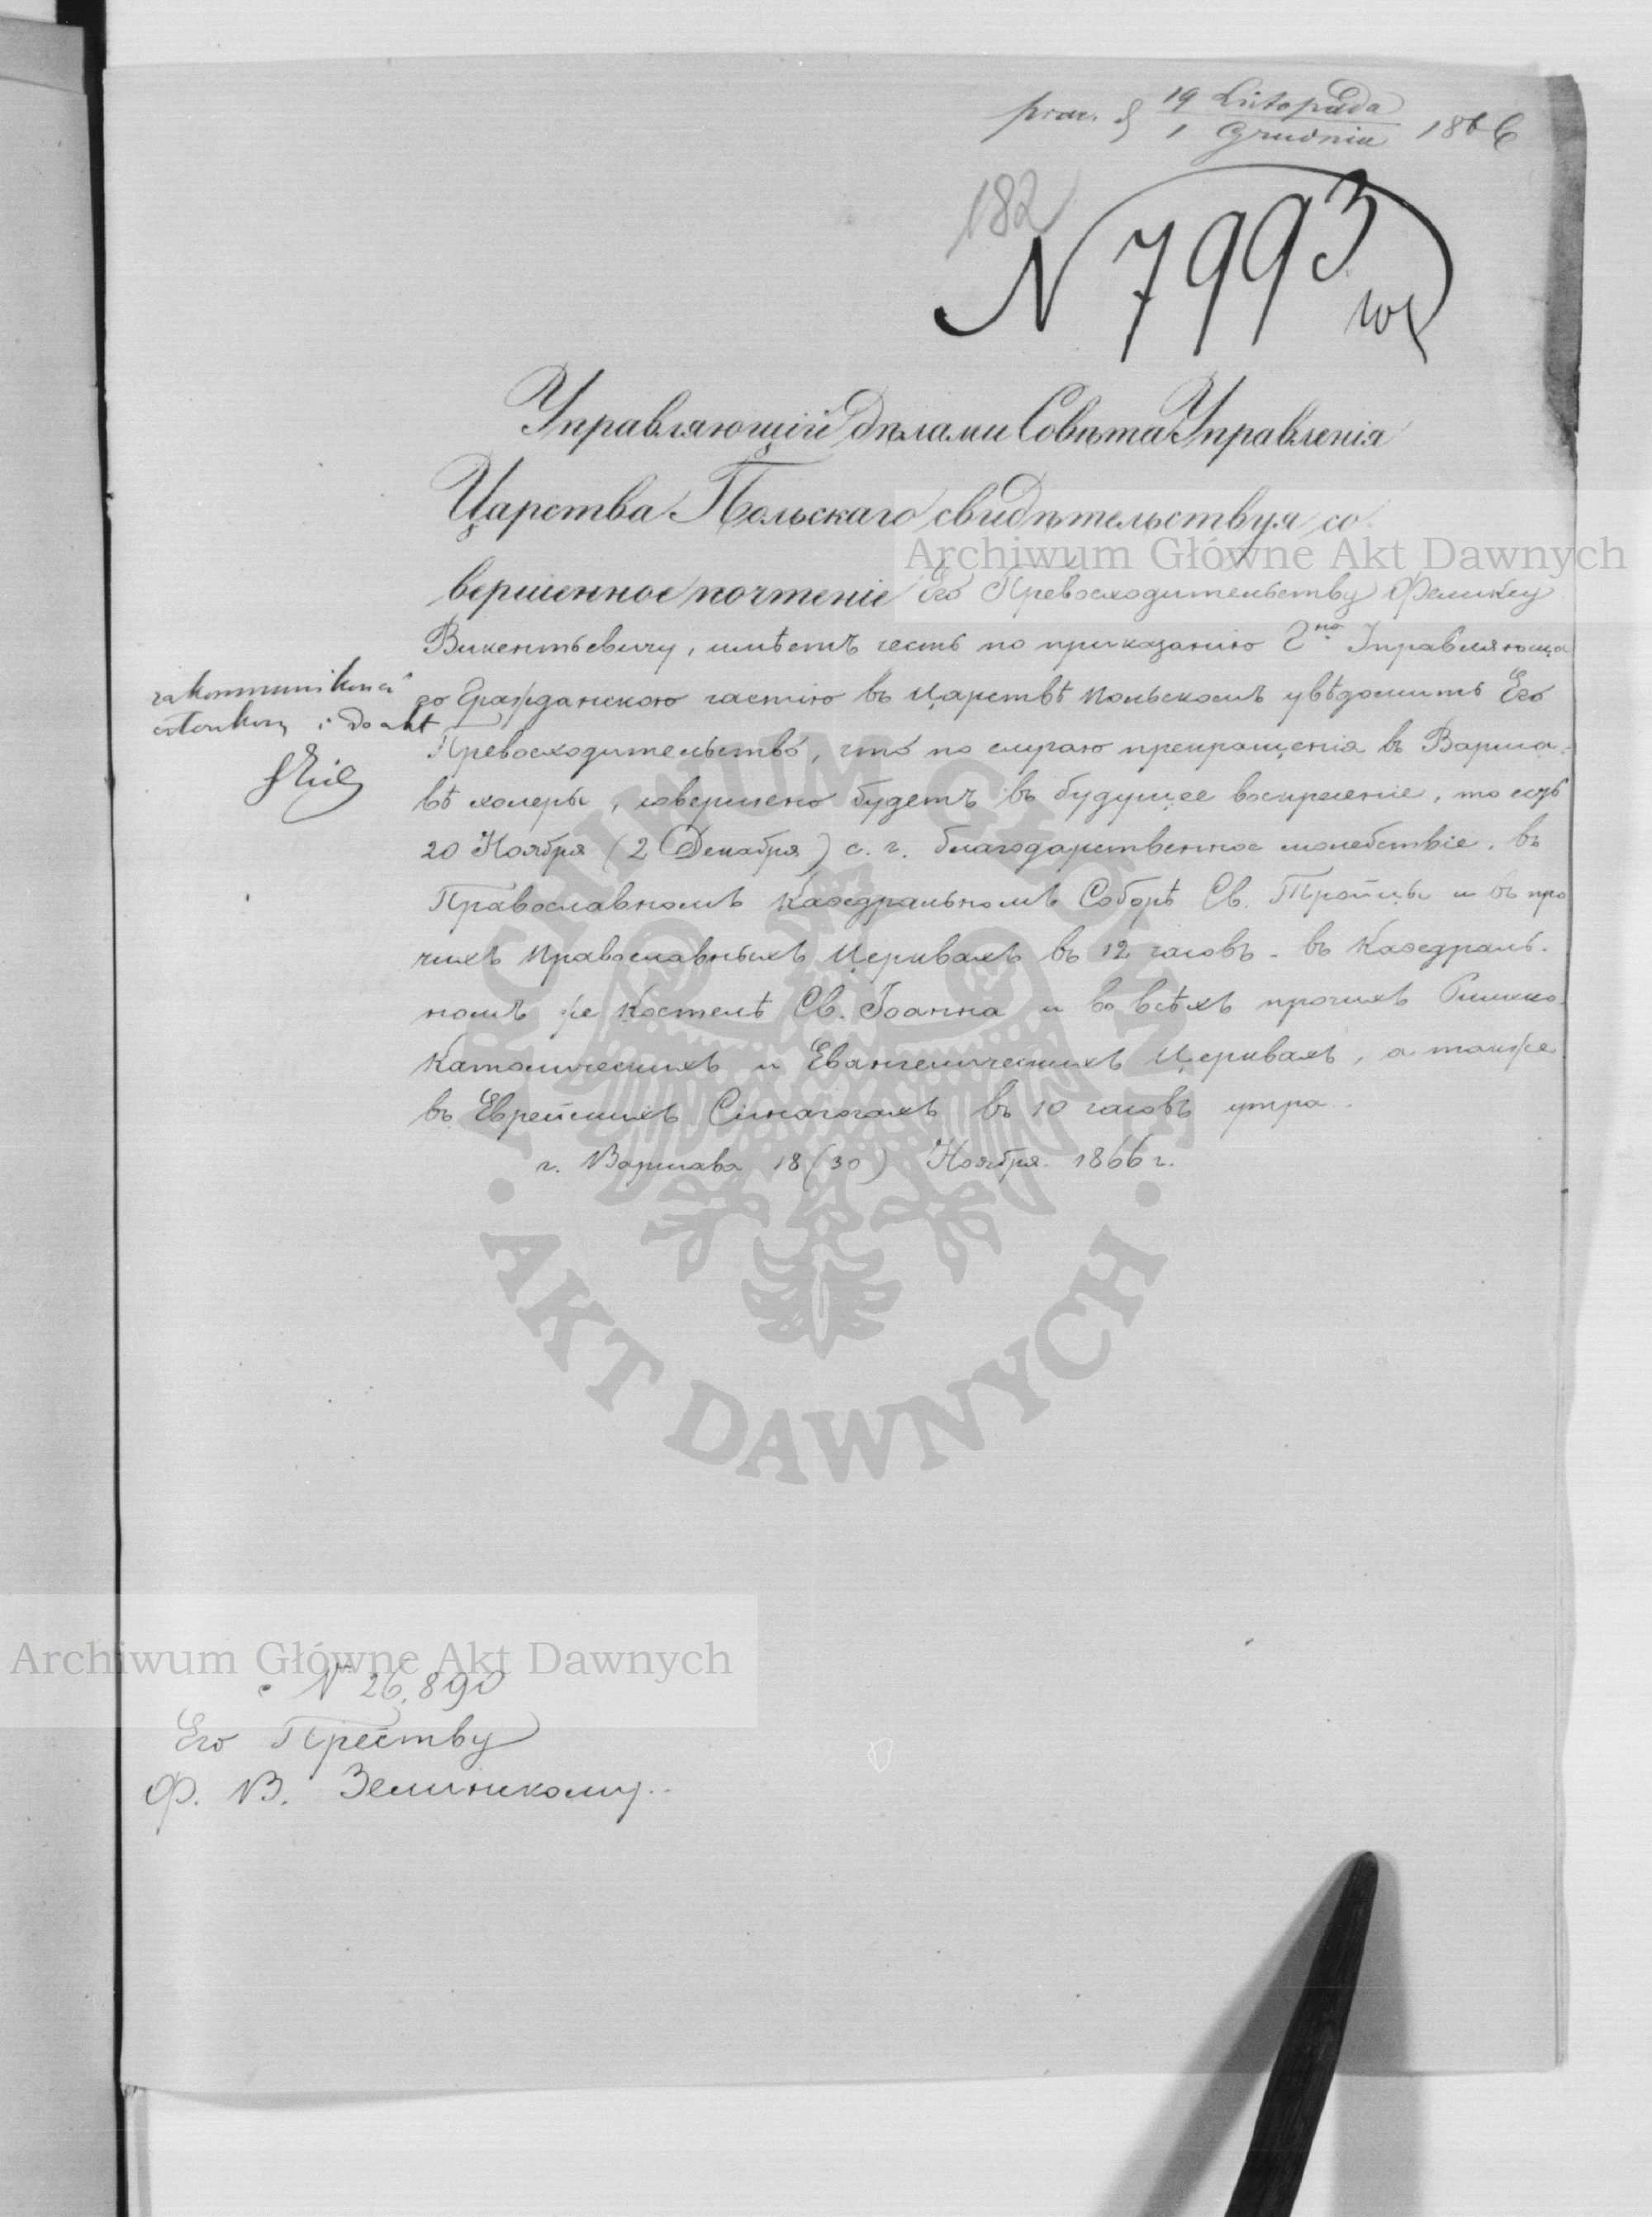 prez. d. 19 Listopada / 1 Grudnia 1866
182
N 7993
Управляющій дѣлами Совѣта Управленія
Царства Польскаго свидѣтельствуя со-
вершенное почтеніе Его Превосходительству Феликсу
Викентьевичу, имѣетъ честь по приказанію Гно. Управляюща
го Гражданскою частію въ Царствѣ Польскомъ увѣдомить Его
Превосходительство, что по случаю прекращенія въ Варша-
вѣ холеры, совершено будетъ въ будущее воскресеніе, то есть
20 Ноября (2 Декабря) с. г. благодарственное молебствіе, въ
Православномъ Каѳедральномъ Соборѣ Св. Тройцы и въ про
чихъ Православныхъ Церквахъ въ 12 часовъ - въ Каѳедраль-
номъ же Костелѣ Св. Іоанна и во всѣхъ прочихъ Римско-
Католическихъ и Евангелическихъ Церквахъ, а также
въ Еврейскихъ Сінагогахъ въ 10 часовъ утра.
г. Варшава 18 (30) Ноября 1866 г.
zakommunikować
członkom i do akt
N 26,890
Его Прев̃ству
Ф. В. Зелинскому.
Archiwum Główne Akt Dawnych
Archiwum Główne Akt Dawnych
ARCHIWUM GŁÓWNE
AKT DAWNYCH